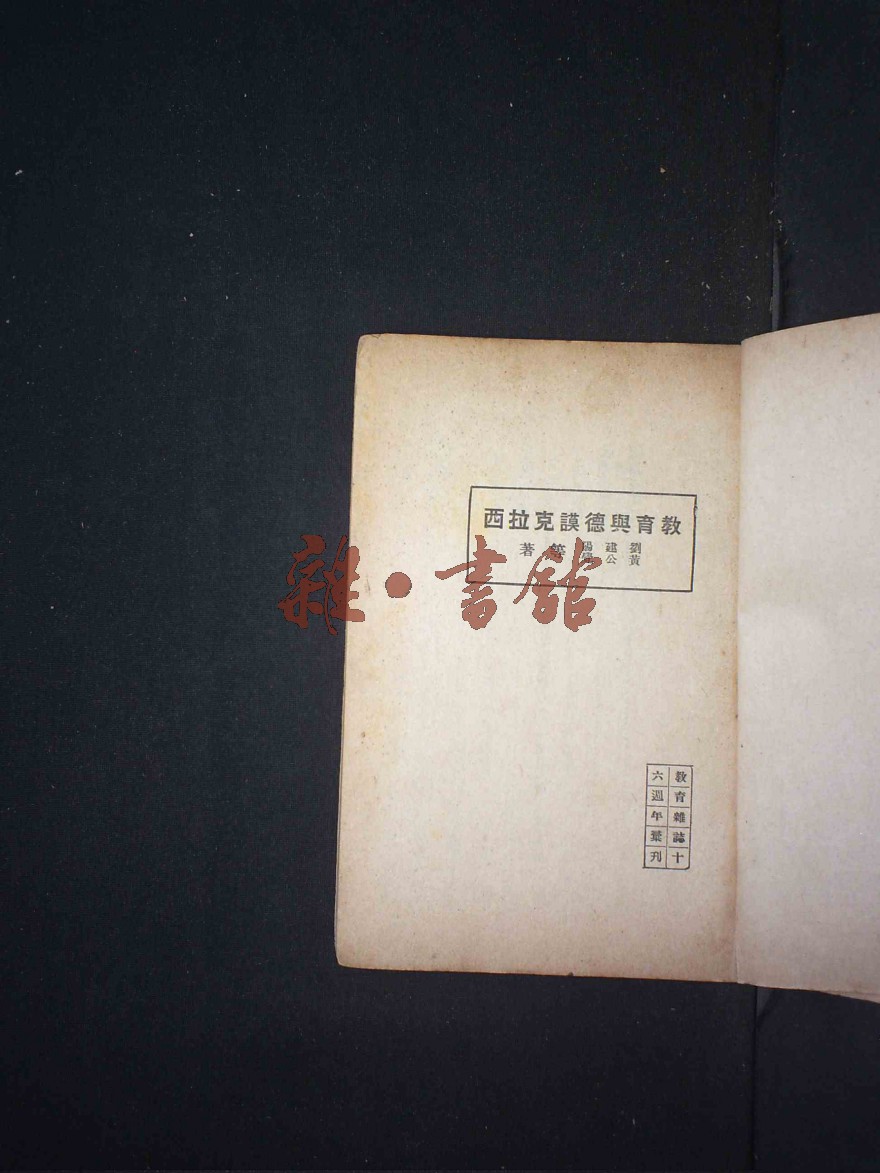 教育與德謨克拉西
劉建陽
黃公覺
等著
教育雜誌十
六週年彙刊
雜·書館